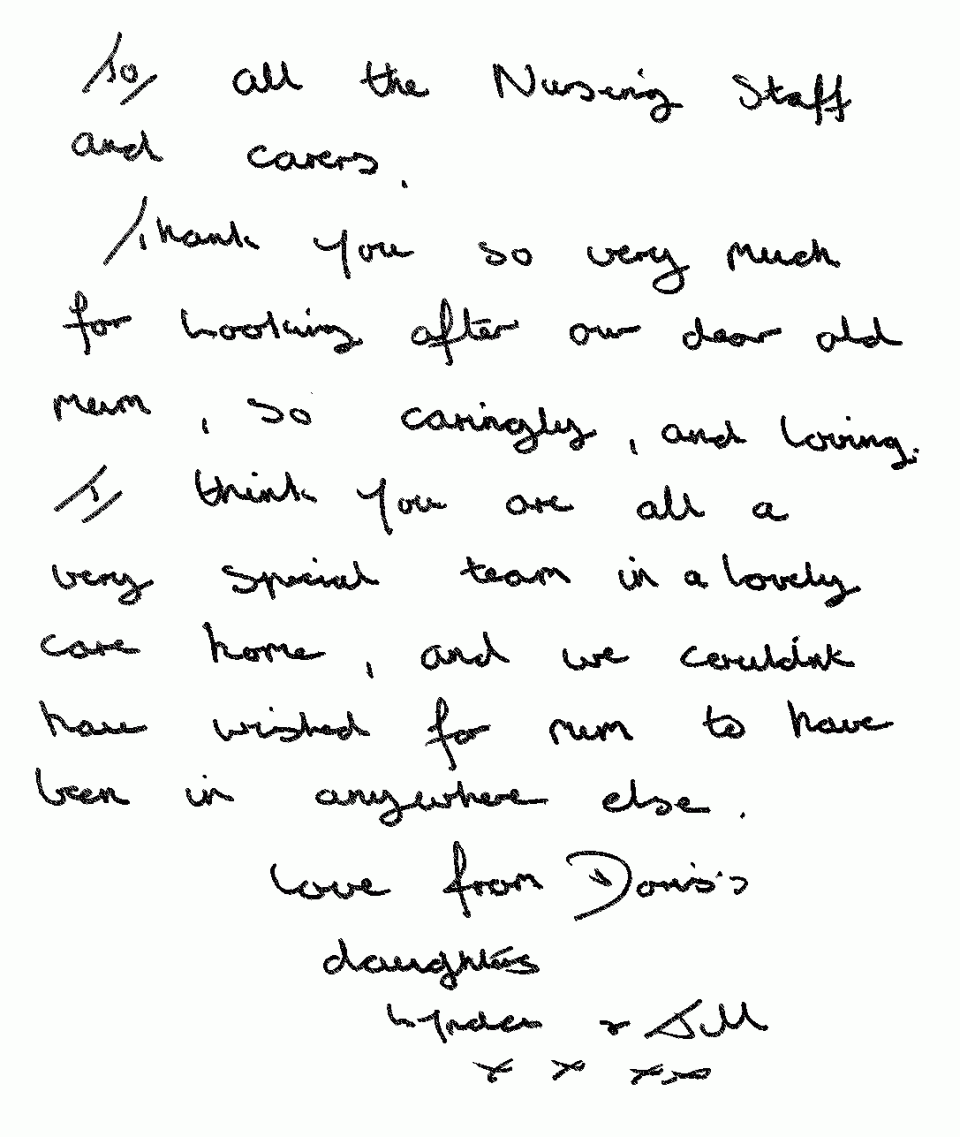 To all the Nursing Staff
and carers.
Thank you so very much
for looking after our dear old
mum, so caringly, and loving.
I think you are all a
very special team in a lovely
care home, and we couldn't
have wished for mum to have
been in anywhere else.
Love from Doris's
daughters
Lynda & Jill
x x x x